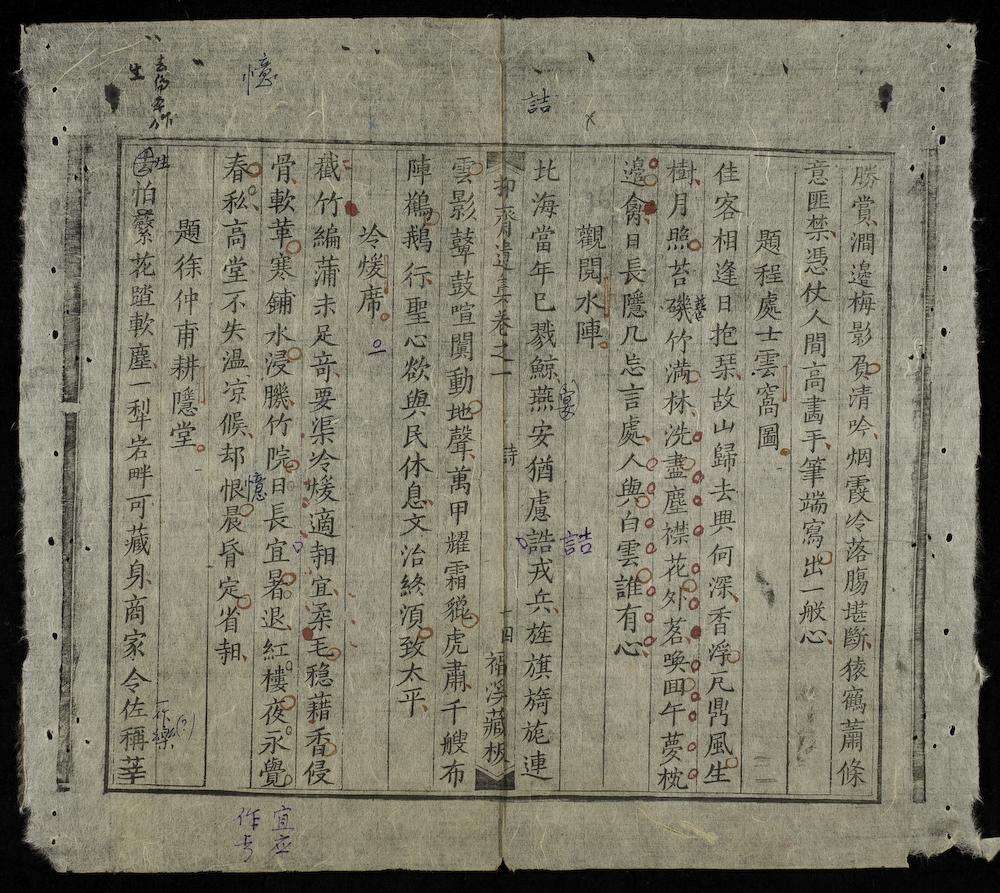 勝賞澗邊梅影負清吟烟霞冷落腸堪斷猿鶴蕭條
意匪禁憑仗人間高畵手筆端寫出一般心
題程處士雲窩圖
佳客相逢日抱琹故山歸去興何深香浮凡鼎風生
樹月照苔磯竹满林洗盡塵襟花外茗喚囬午夢枕
邊禽日長隱几忘言處人與白雲誰有心
觀閱水陣
比海當年巳戮鯨燕安猶慮誥戎兵旌旗旖旎連
抑齋遺集卷之一
詩
十四
福溪藏板
雲影鼙鼓喧闐動地聲萬甲耀霜貔虎肅千艘布
陣鸛鵝行聖心欲與民休息文治終湏致太平
冷煖席
截竹編蒲未足竒要渠冷煖適𨋖宜柔毛穏藉香侵
骨軟草寒鋪水浸膓竹院日長宜暑退紅樓夜永覺
春私高堂不失温凉候却恨晨昏定省𨋖
題徐仲甫耕隱堂
怕縈花蹅軟塵一犁岩畔可藏身商家令佐稱莘
憶
詰
詰
憶
宜应
作
生